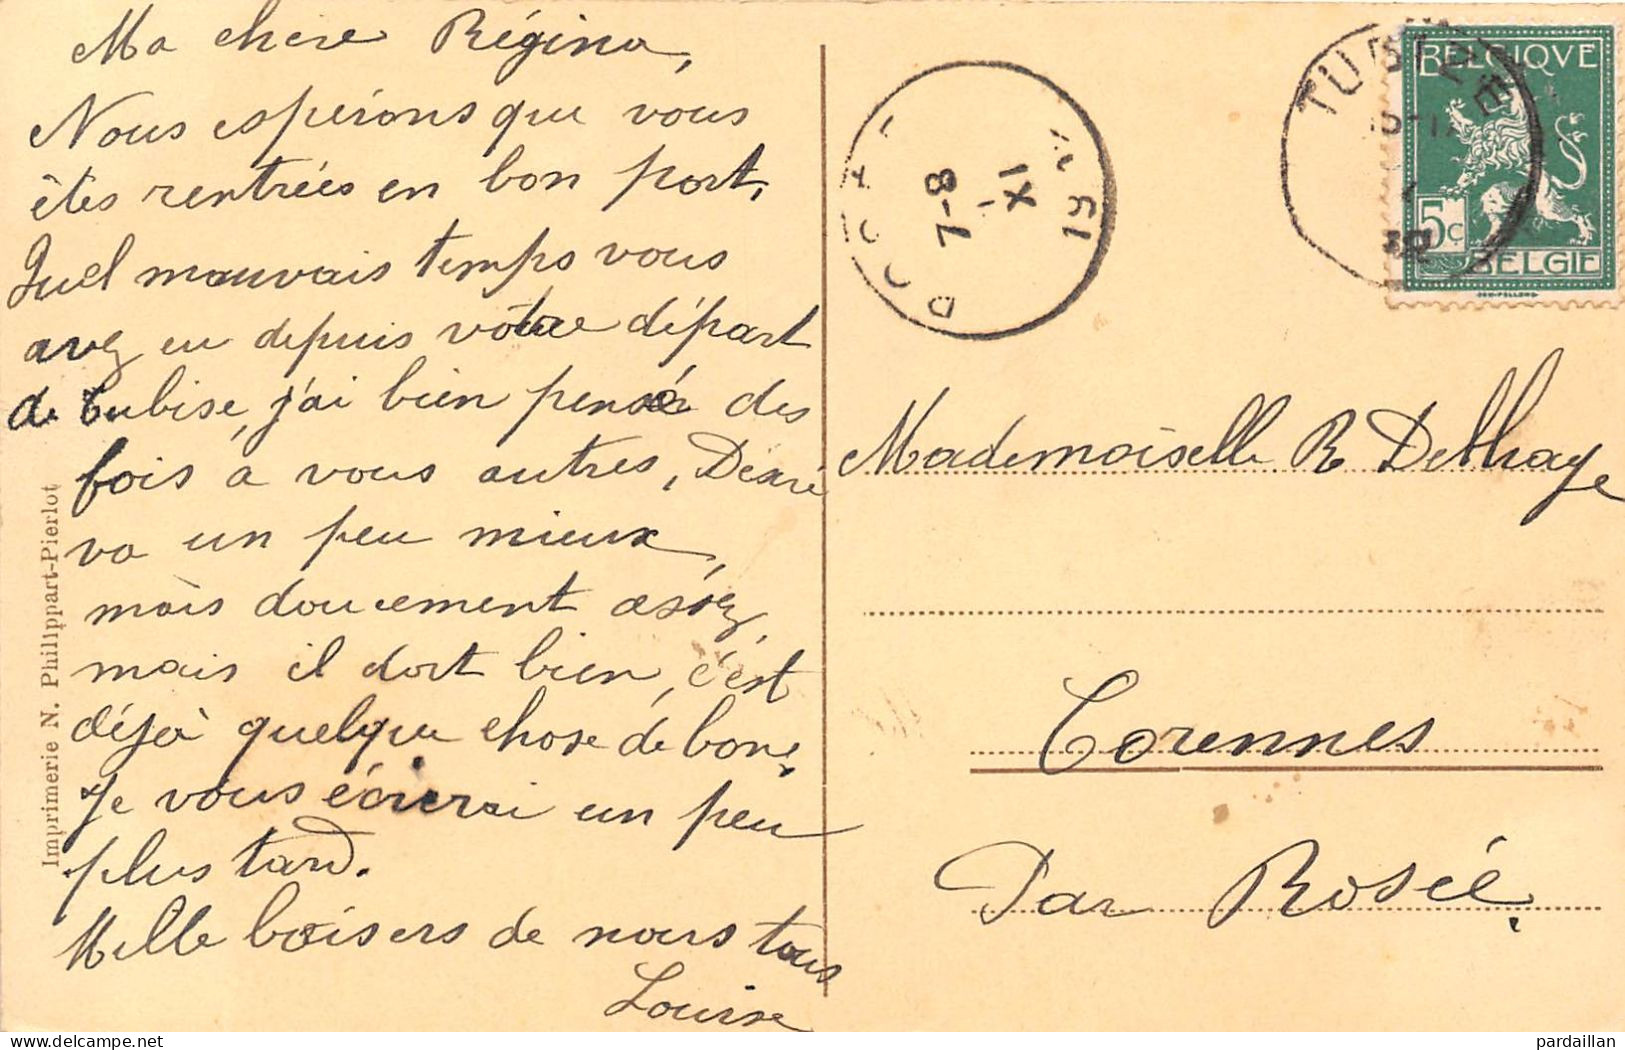 Ma chere Régina,
Nous espérons que vous
êtes rentrées en bon port,
Quel mauvais temps vous
avez eu depuis votre départ
de Tubise, j'ai bien pensé des
fois a vous autres, Désiré
va un peu mieux,
mais doucement assez,
mais il dort bien, c'est
déjà quelque chose de bon,
Je vous écrirai un peu
plus tard.
Mille baisers de nous tous
Louise
Imprimerie N. Philippart-Pierlot
7-8
XI
19
TUBIZE
BELGIQVE
5c
BELGIE
Mademoiselle R Delhaye
Corennes
Par Rosée.
pardaillan